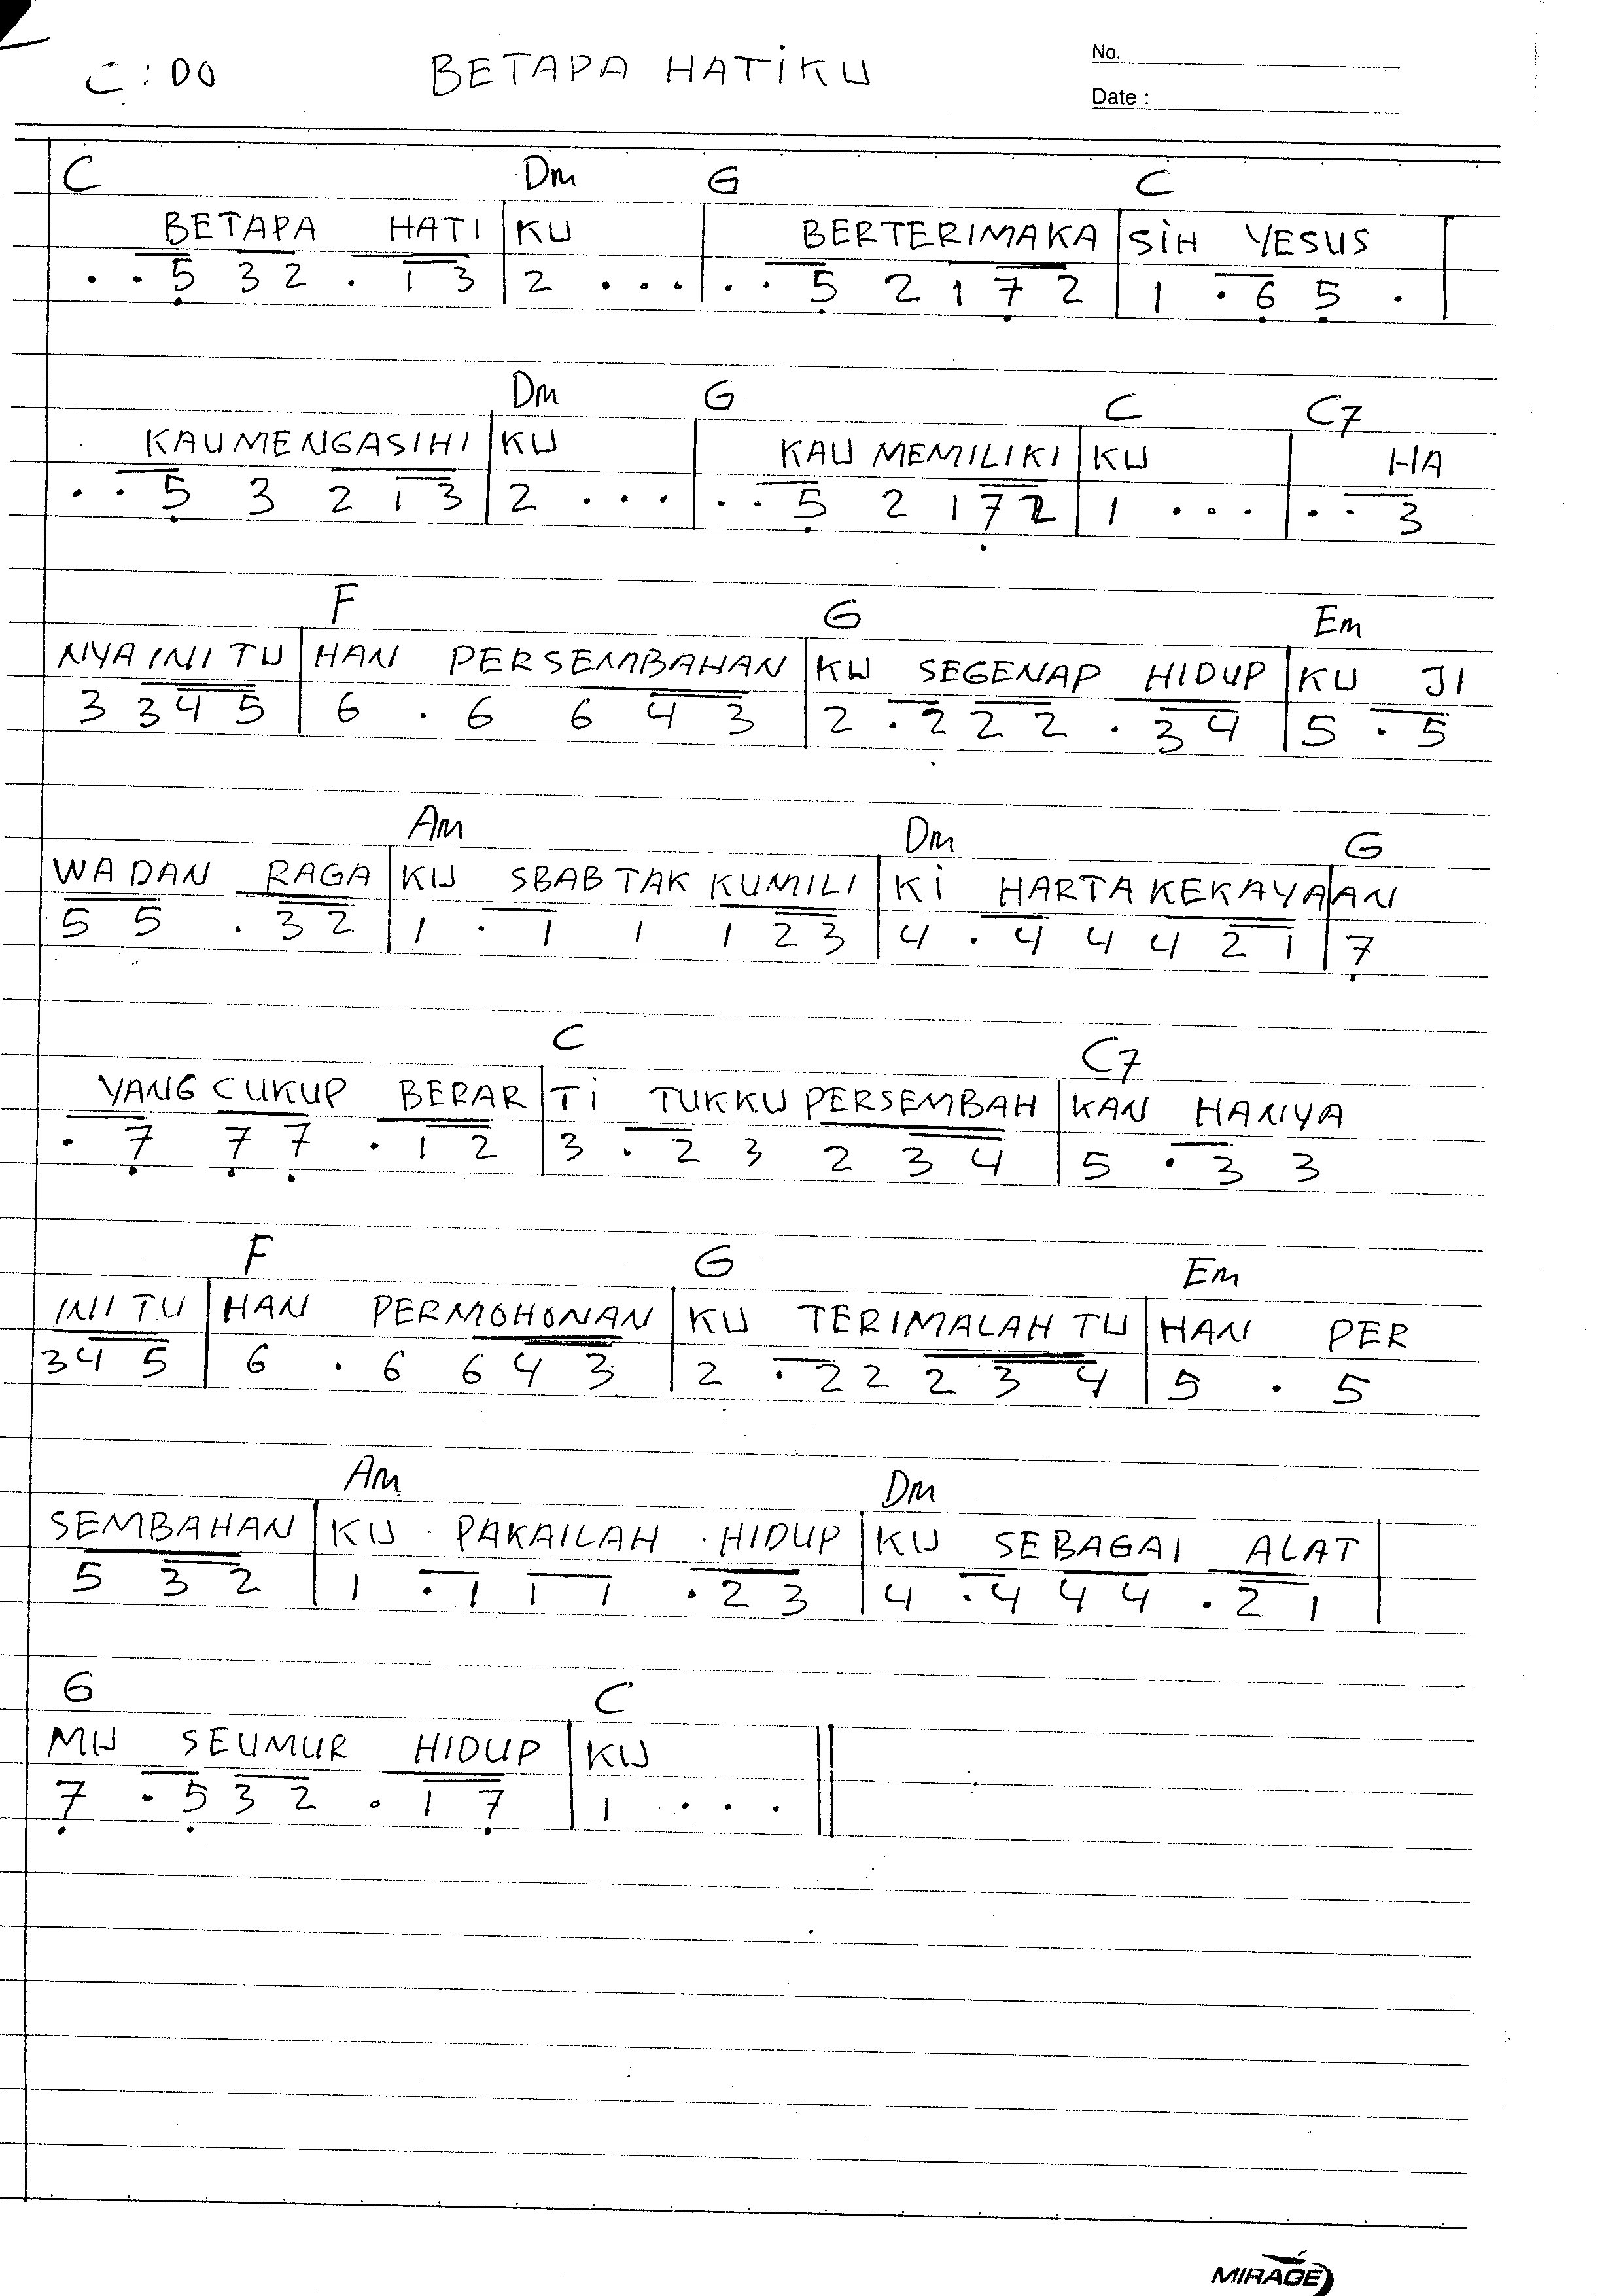 C : DO BETAPA HATiKU No.
Date :
C Dm G C
BETAPA HATI | KU | BERTERIMAKA | SiH YESUS |
. . 5 3 2 . 1 3 | 2 . . . | . . 5 2 1 7 2 | 1 . 6 5 . |
Dm G C C7
KAU MENGASIHI | KU | KAU MEMILIKI | KU | HA
. . 5 3 2 1 3 | 2 . . . | . . 5 2 1 7 2 | 1 . . . | . . 3
F G Em
NYA INI TU | HAN PERSEMBAHAN | KU SEGENAP HIDUP | KU JI
3 3 4 5 | 6 . 6 6 4 3 | 2 . 2 2 2 . 3 4 | 5 . 5
Am Dm G
WA DAN RAGA | KU SBAB TAK KUMILI | Ki HARTA KEKAYA | AN
5 5 . 3 2 | 1 . 1 1 1 2 3 | 4 . 4 4 4 2 1 | 7
C C7
YANG CUKUP BERAR | Ti TUKKU PERSEMBAH | KAN HANYA
. 7 7 7 . 1 2 | 3 . 2 3 2 3 4 | 5 . 3 3
F G Em
INI TU | HAN PERMOHONAN | KU TERIMALAH TU | HAN PER
3 4 5 | 6 . 6 6 4 3 | 2 . 2 2 2 3 4 | 5 . 5
Am Dm
SEMBAHAN | KU PAKAILAH HIDUP | KU SEBAGAI ALAT |
5 3 2 | 1 . 1 1 1 . 2 3 | 4 . 4 4 4 . 2 1 |
G C
MU SEUMUR HIDUP | KU ||
7 . 5 3 2 . 1 7 | 1 . . . ||
MIRAGE